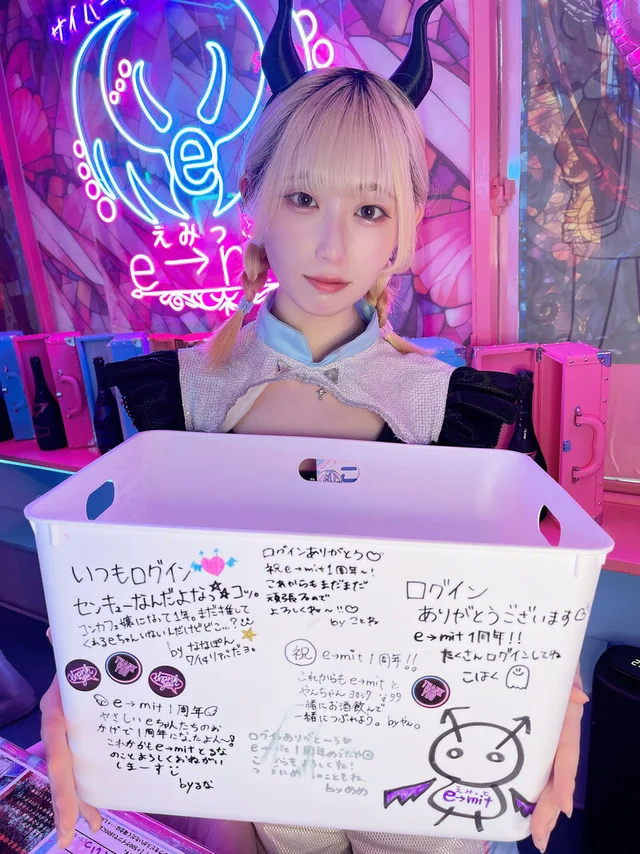 サイバー
e
えみっ
e→m
いつもログイン
センキューなんだよなっ★コッ。
コンカフェ嬢になって1年。まだ推して
くれるeちゃんいないんだけどどこ…?
by ななぽん
ログインありがとう♡
祝 e→mit 1周年〜!
これからもまだまだ
頑張るので
よろしくね〜!!♡
by ことね
ログイン
ありがとうございます♡
e→mit 1周年!!
たくさんログインしてね
こはく
祝 e→mit 1周年!!
これからも e→mit と
やんちゃん ヨロシク
一緒にお酒飲んで
一緒につぶれよう。 byやん。
e→mit 1周年
やさしい eちゃんたちのお
かげで1周年になったよ〜!
これからも e→mit とるな
のことよろしくおねがい
しまーす
by るな
ログインありがと〜
e→mit 1周年めでたや
よろしくね!
by めめ
えみっと
e→mit